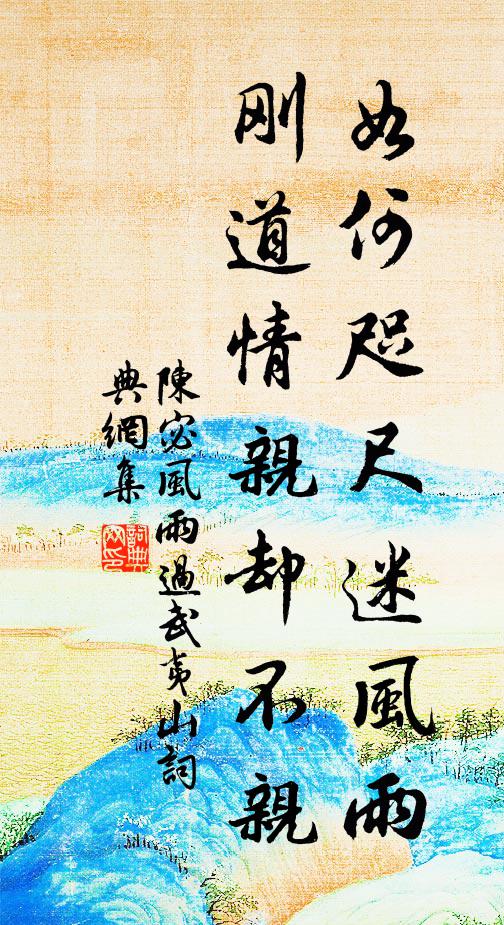 如何咫尺迷風雨
剛道情親却不親
陳宓風雨過武夷山詞
典網集